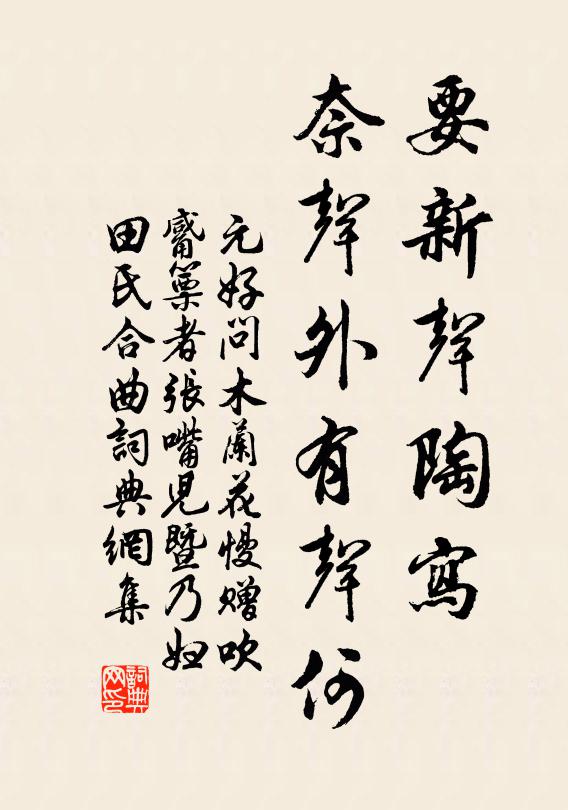 要新聲陶寫
奈聲外有聲何
元好問木蘭花慢贈吹
觱篥者張嘴兒暨乃婦
田氏合曲詞典網集
詞典
网印